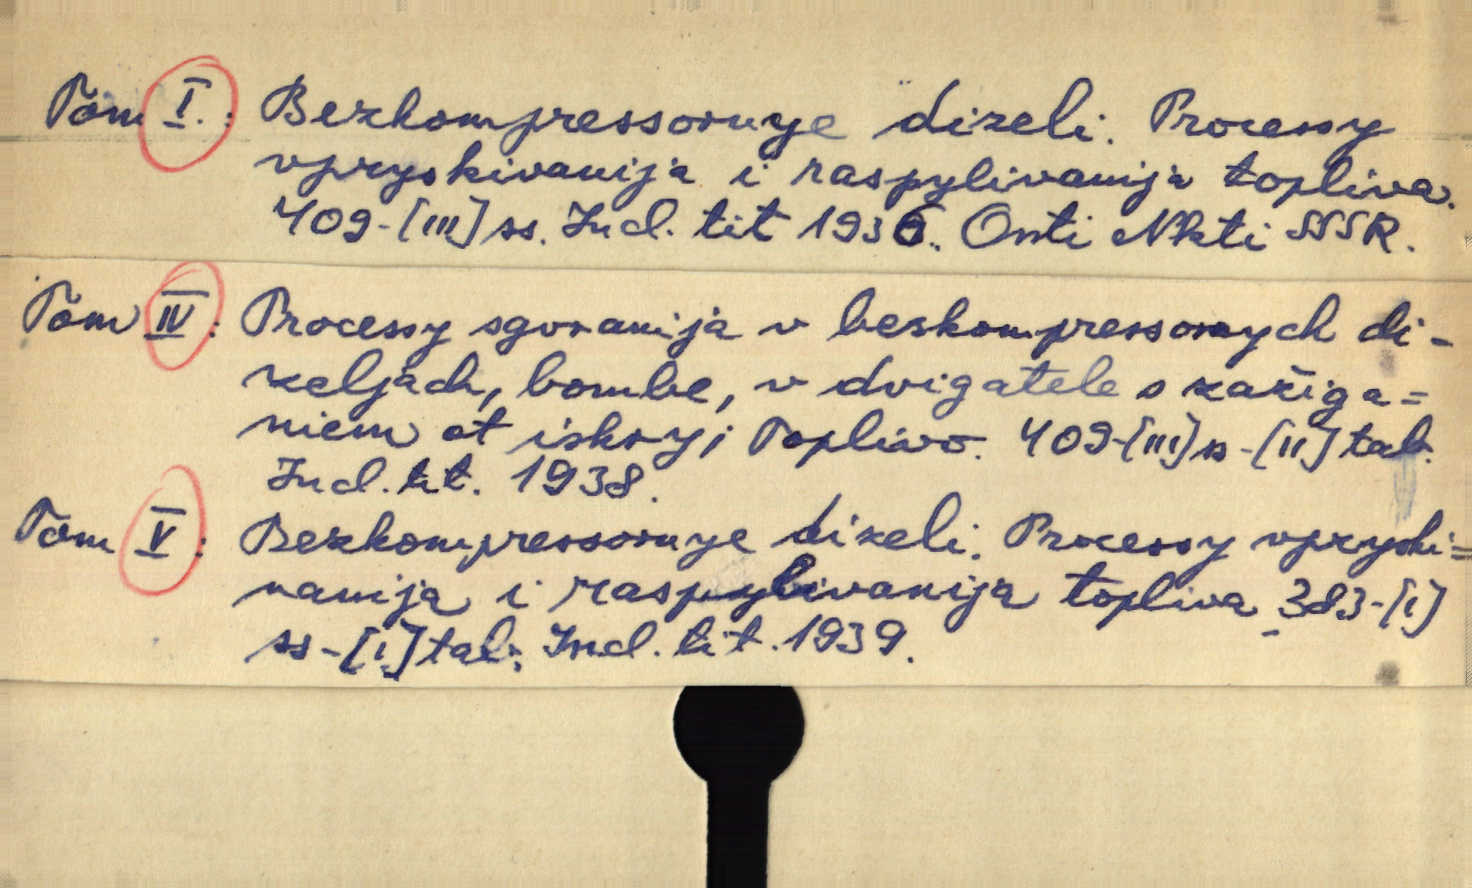 Tom I.: Bezkompressornye dizeli. Processy
vpryskivanija i raspylivanija topliva.
409-[III] ss. Incl. tit 1936. Onti Nkti SSSR.
Tom IV: Processy sgoranija v beskompressornych di-
zeljach, bombe, v dvigatele s zažiga=
niem ot iskry; Toplivo. 409-[III] ss-[II] tab.
Incl. tit. 1938.
Tom V: Bezkompressornye dizeli. Processy vpryski=
vanija i raspylivanija topliva 383-[I]
ss-[I] tab. Incl. tit. 1939.